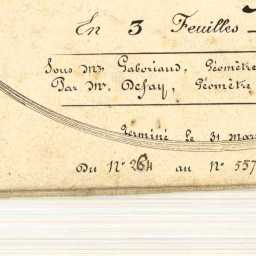 En 3 Feuilles
Sous Mr. Gaboriaud, Géomètre
Par Mr. Defay, Géomètre
Terminé le 31 mars
Du No 264 au No 557